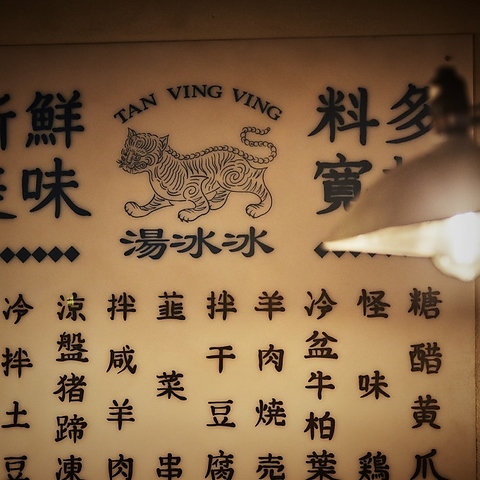 新鮮
美味
TAN VING VING
湯冰冰
料多
寬
糖醋黃爪
怪味鶏
冷盆牛柏葉
羊肉燒売
拌干豆腐
韮菜串
拌咸羊肉
涼盤猪蹄凍
冷拌土豆